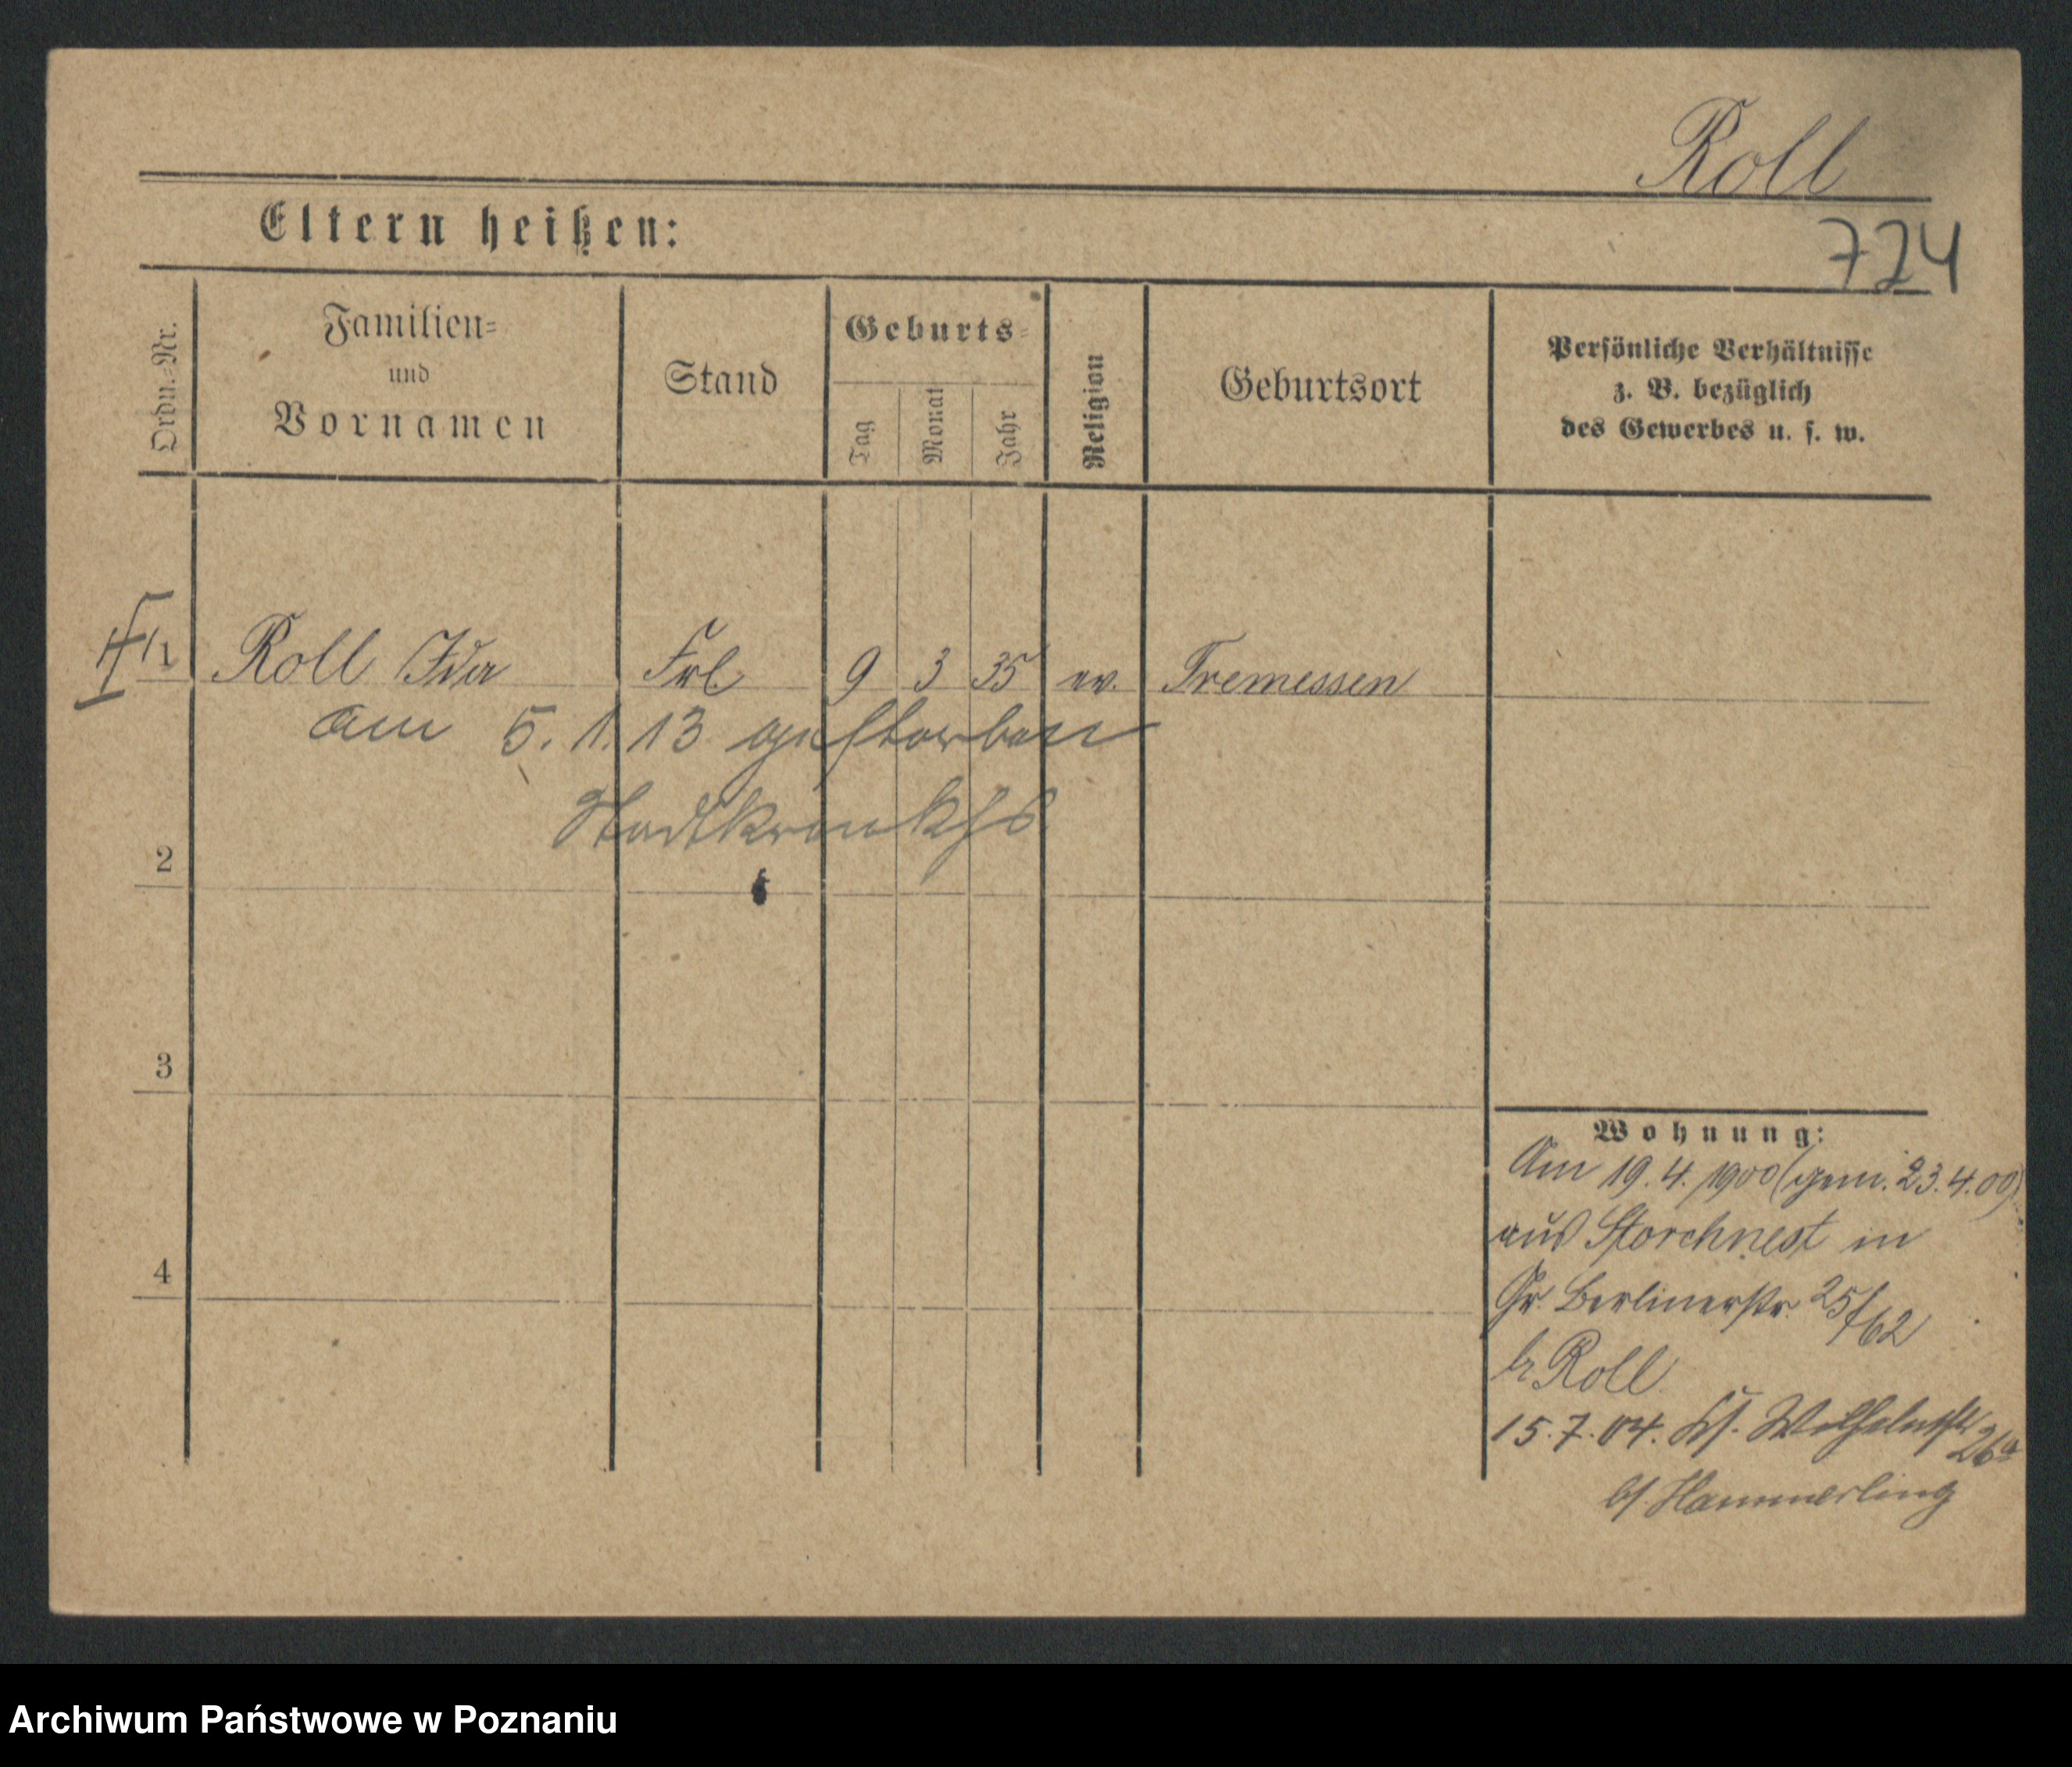 Roll
Eltern heißen:
724
Ordn.-Nr.
Familien-
und
Vornamen
Stand
Geburts-
Tag
Monat
Jahr
Religion
Geburtsort
Persönliche Verhältnisse
z. B. bezüglich
des Gewerbes u. s. w.
1 Roll Ida Frl 9 3 35 ev. Tremessen
am 5. 1. 13 gestorben
Stadtkrankhs.
2
3
4
Wohnung:
Am 19. 4. 1900 (gem. 23. 4. 00)
aus Storchnest in
Gr. Berlinerstr. 25/62
br Roll
15. 7. 04. Ks. Wilhelmstr 26a
b/ Hammerling
Archiwum Państwowe w Poznaniu